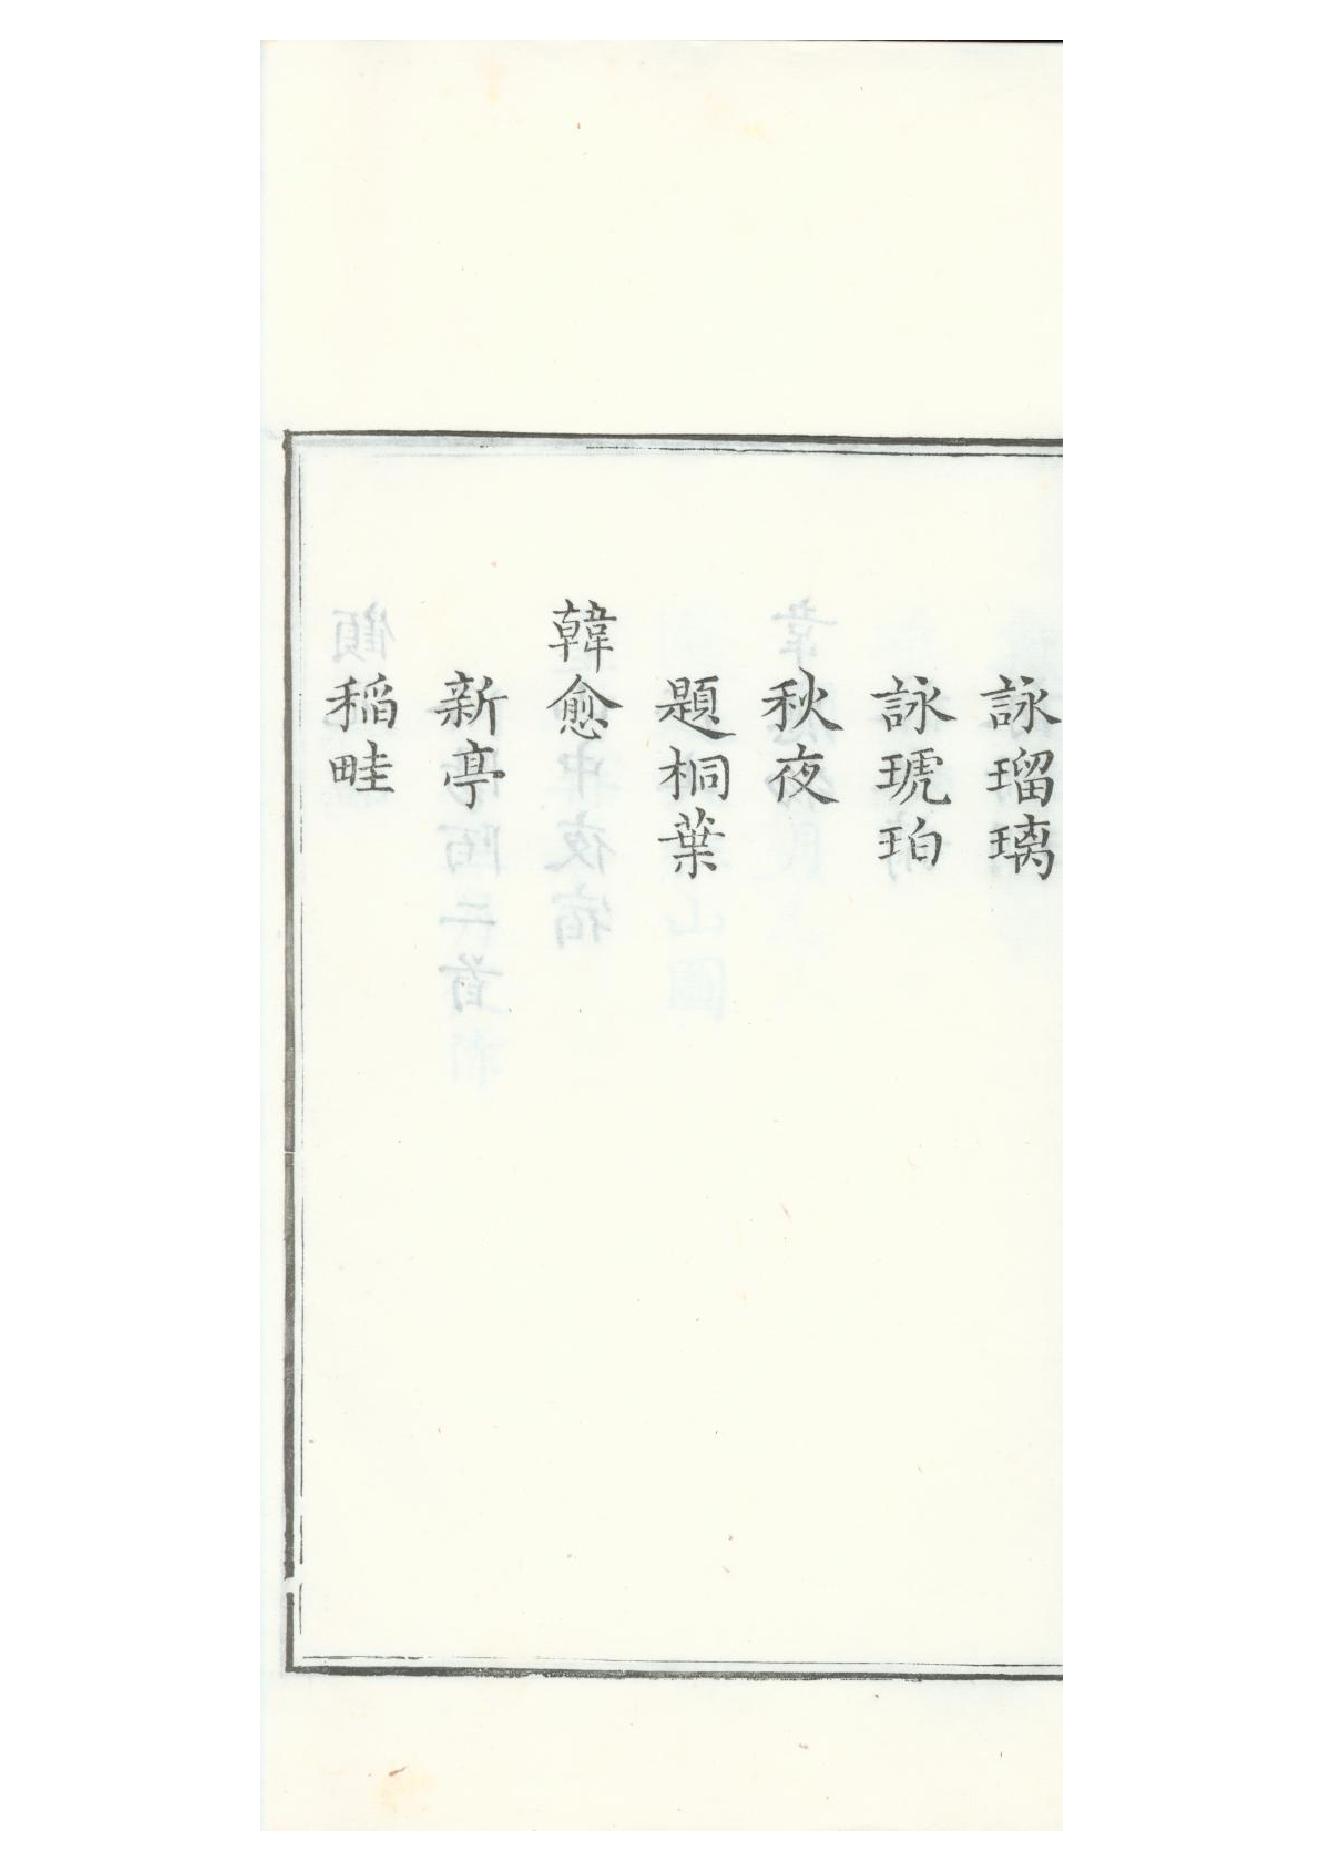 詠瑠璃
詠琥珀
秋夜
題桐葉
韓愈
新亭
稲畦